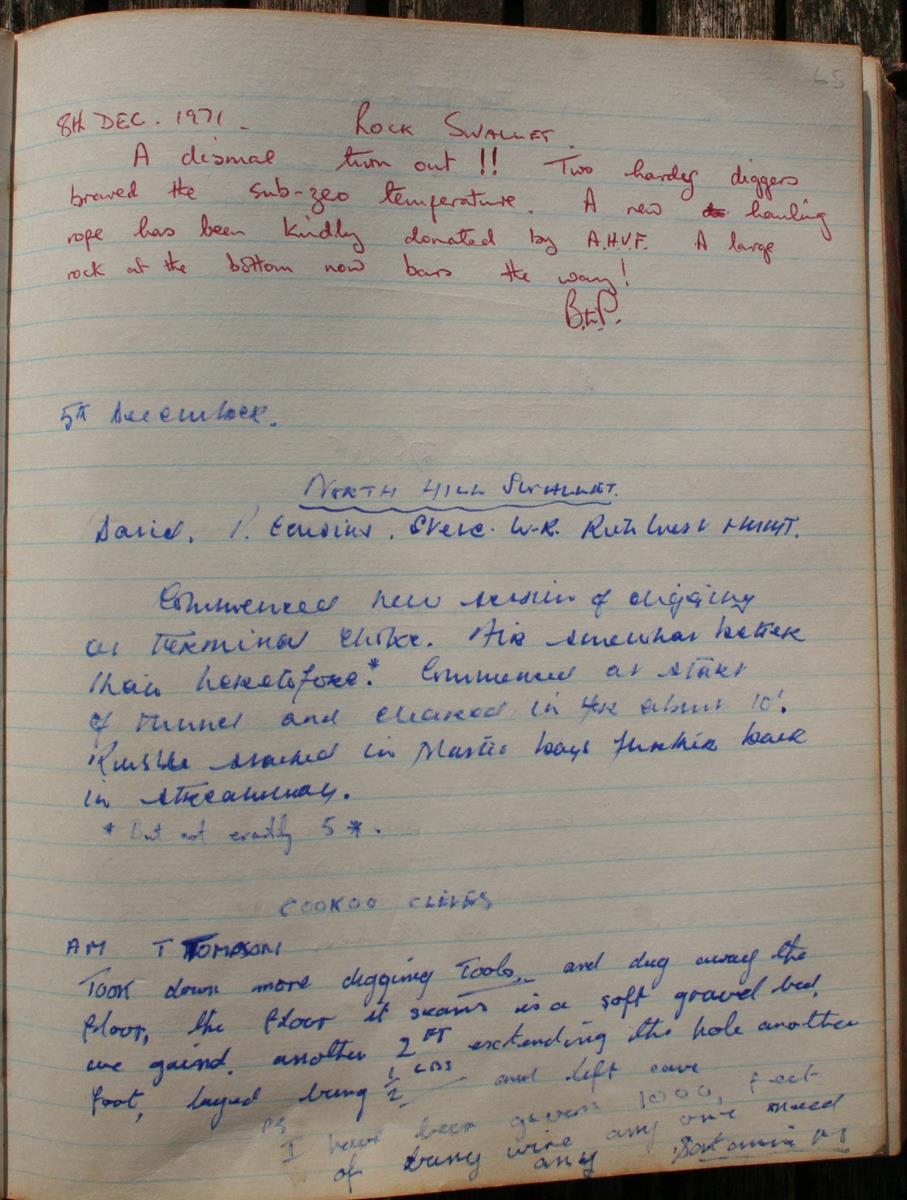 65
8th DEC. 1971. ROCK SWALLET.
A dismal turn out !! Two hardy diggers
braved the sub-zeo temperature. A new hauling
rope has been kindly donated by A.H.V.F. A large
rock at the bottom now bars the way!
5th December.
NORTH HILL SWALLET.
David, P. Cousins, Steve. W-R.
Commenced new session of digging
at terminal choke. Air somewhat better
than heretofore*. Commenced at start
of tunnel and cleared in for about 10'.
Rubble stacked in plastic bags further back
in streamway.
* but not exactly 5 *.
COOKOO CLEEVES
AM T TOMPSON
Took down more digging Tools, and dug away the
floor, the floor it seams is a soft gravel bed.
we gaind another 2 FT extending the hole another
foot, layed bang ½ LBS and left cave
PS
I have been given 1000, feet
of bang wire any one need
any